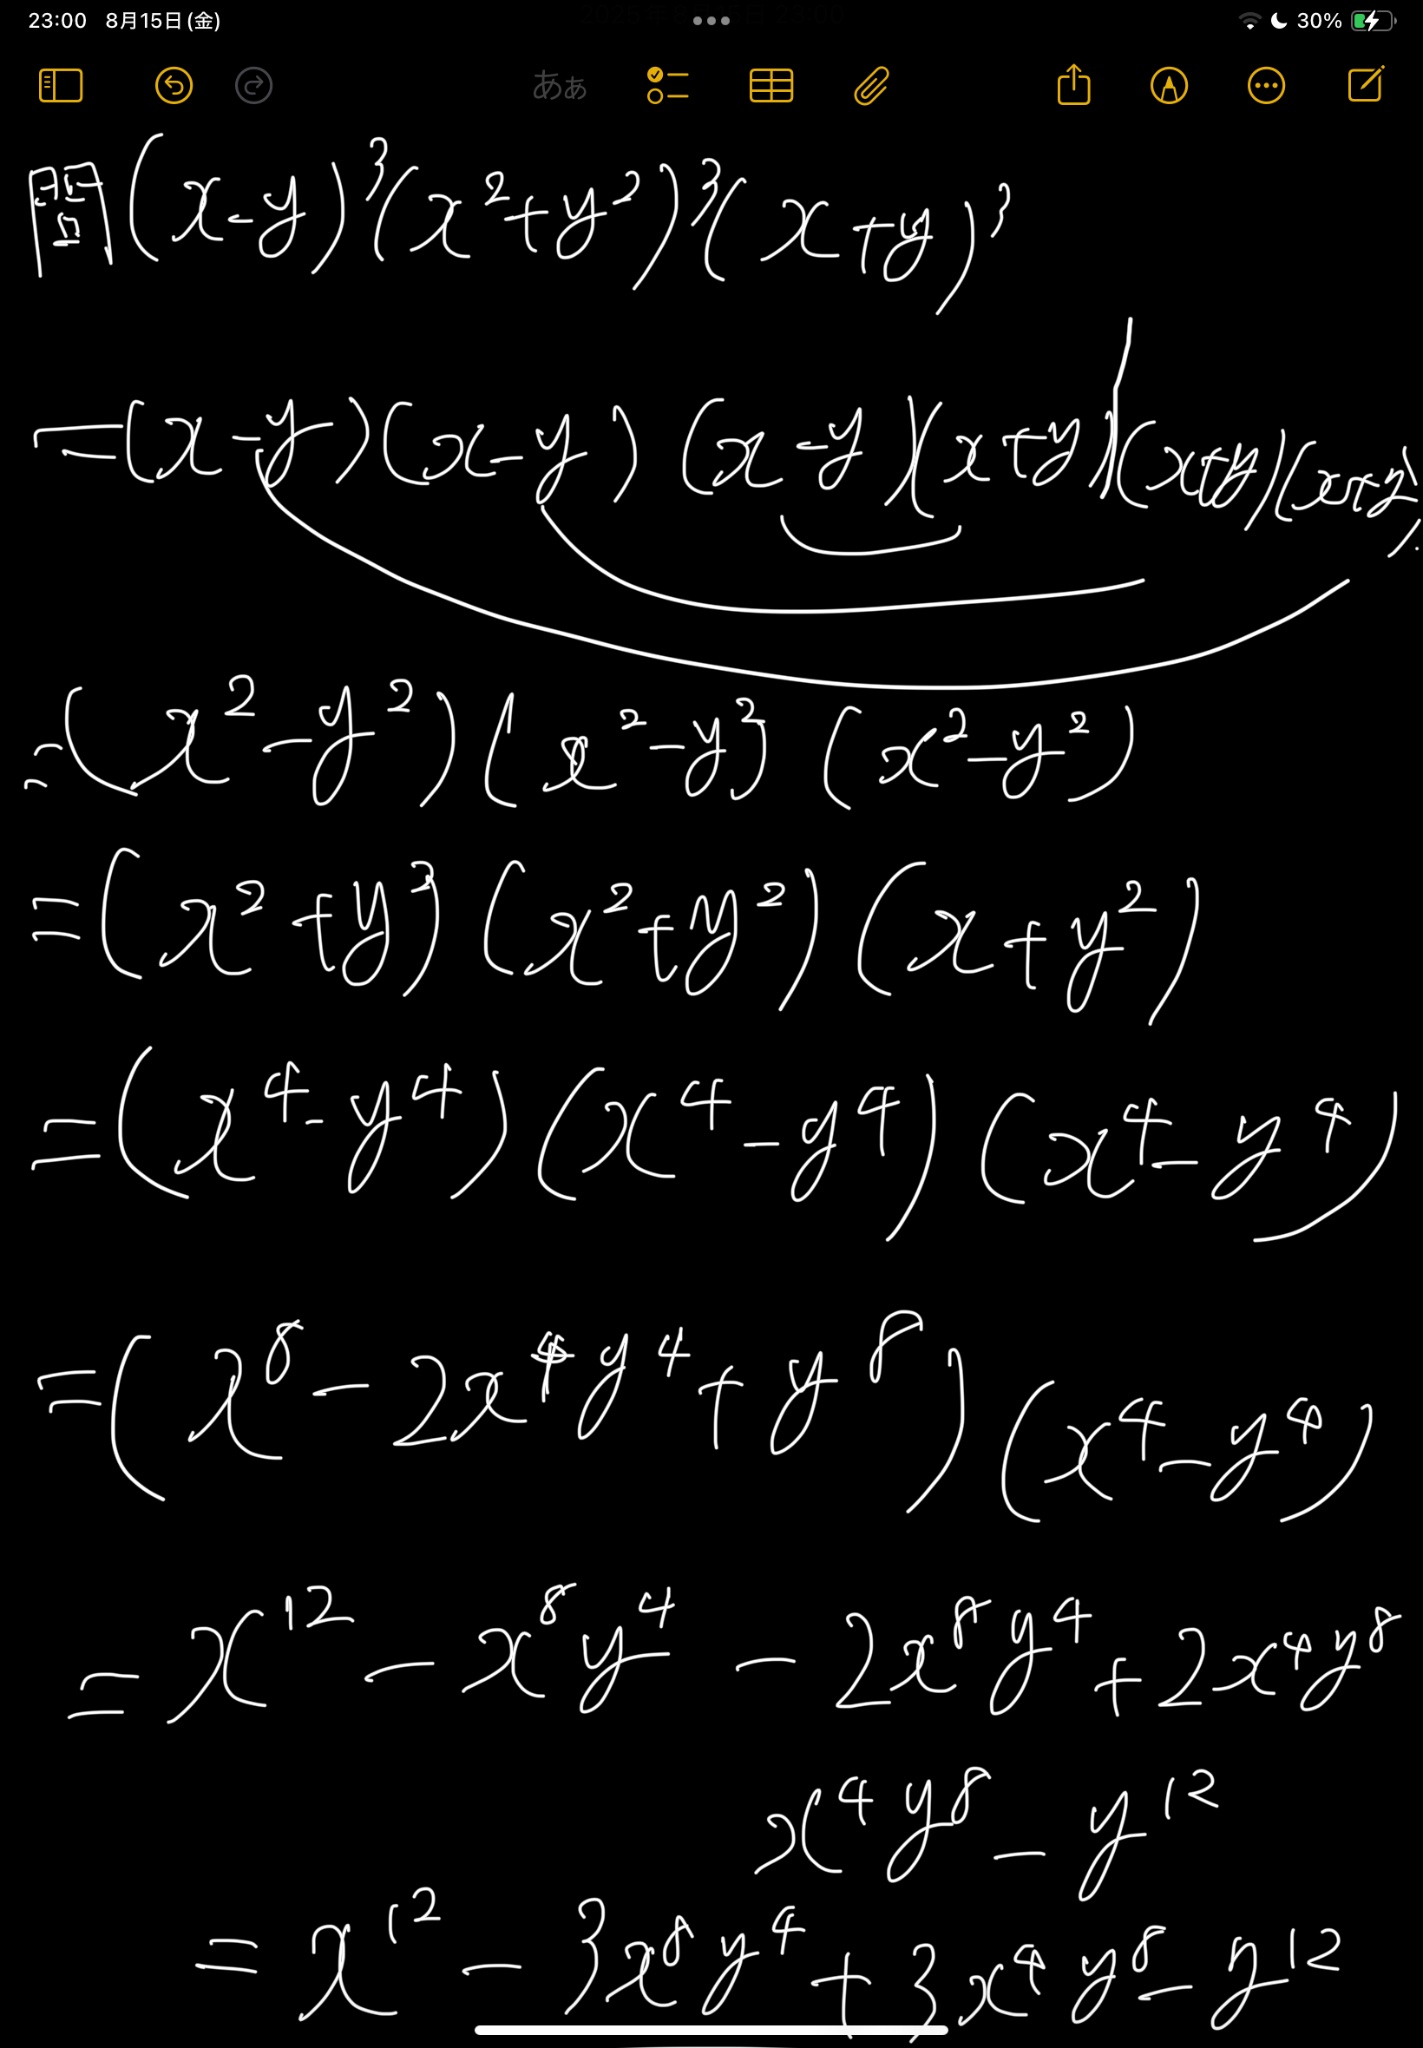 23:00 8月15日(金) 30%
ああ
問(x-y)³(x²+y²)³(x+y)³
=(x-y)(x-y)(x-y)(x+y)(x+y)(x+y)
=(x²-y²)(x²-y²)(x²-y²)
=(x²+y²)(x²+y²)(x+y²)
=(x⁴-y⁴)(x⁴-y⁴)(x⁴-y⁴)
=(x⁸-2x⁴y⁴+y⁸)(x⁴-y⁴)
=x¹²-x⁸y⁴-2x⁸y⁴+2x⁴y⁸
x⁴y⁸-y¹²
=x¹²-3x⁸y⁴+3x⁴y⁸-y¹²